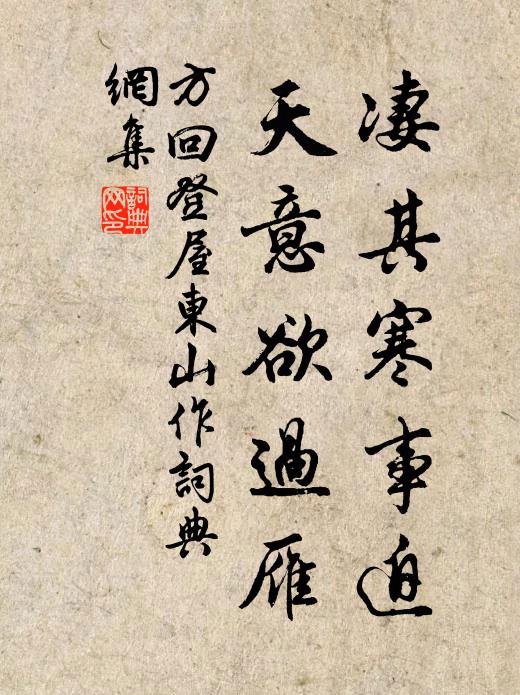 凄其寒事迫
天意欲過雁
方回登屋東山作詞典
網集
詞典網印